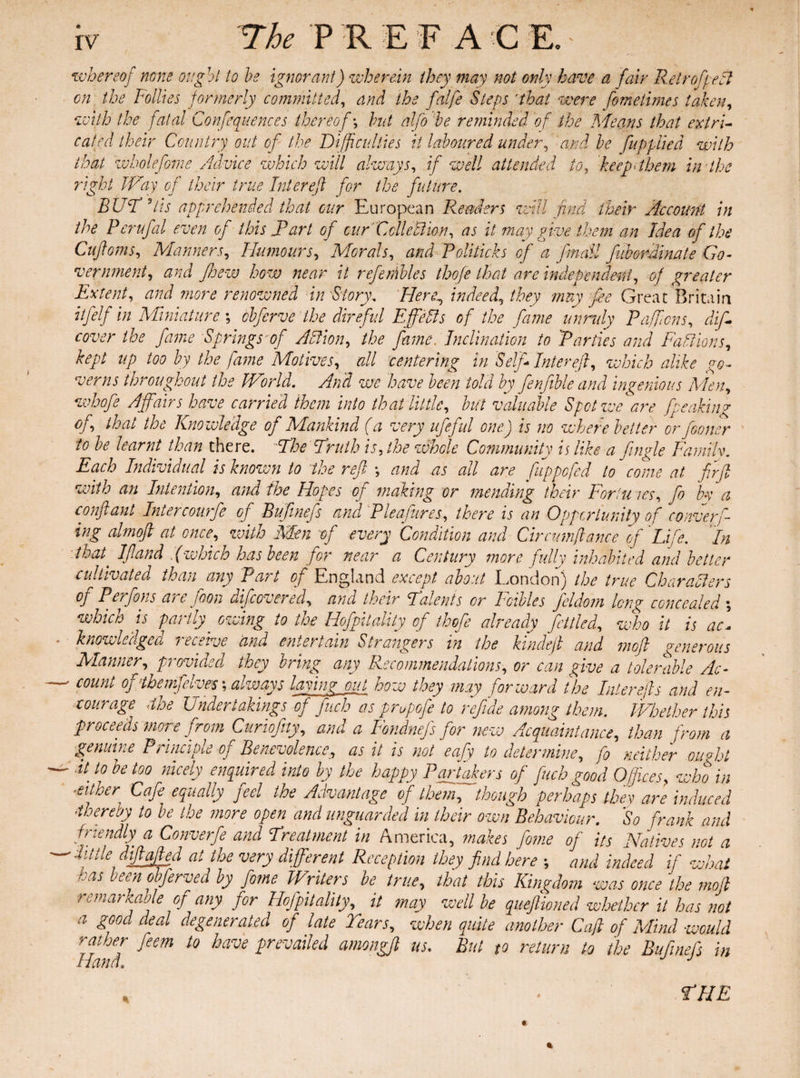 iv The PREFACE.
whereof none ought to be ignorant) wherein they may not only have a fair Retroſpect
on the Follies formerly committed, and the falſe Steps that were ſometimes taken,
with the fatal Conſequences thereof; but alſo be reminded of the Means that extri-
cated their Country out of the Difficulties it laboured under, and be ſupplied with
that wholeſome Advice which will always, if well attended to, keep them in the
right Way of their true Intereſt for the future.
BUT 'tis apprehended that our European Readers will find their Account in
the Peruſal even of this Part of our Collection, as it may give them an Idea of the
Cuſtoms, Manners, Humours, Morals, and Politicks of a ſmall ſubordinate Go-
vernment, and ſhew how near it reſembles thoſe that are independent, of greater
Extent, and more renowned in Story. Here, indeed, they may ſee Great Britain
itſelf in Miniature; obſerve the direful Effects of the ſame unruly Paſſions, diſ-
cover the ſame Springs of Action, the ſame Inclination to Parties and Factions,
kept up too by the ſame Motives, all centering in Self-Intereſt, which alike go-
verns throughout the World. And we have been told by ſenſible and ingenious Men,
whoſe Affairs have carried them into that little, but valuable Spot we are ſpeaking
of, that the Knowledge of Mankind (a very uſeful one) is no where better or ſooner
to be learnt than there. The Truth is, the whole Community is like a ſingle Family.
Each Individual is known to the reſt; and as all are ſuppoſed to come at firſt
with an Intention, and the Hopes of making or mending their Fortunes, ſo by a
conſtant Intercourſe of Buſineſs and Pleaſures, there is an Opportunity of converſ-
ing almoſt at once, with Men of every Condition and Circumſtance of Life. In
that Iſland (which has been for near a Century more fully inhabited and better
cultivated than any Part of England except about London) the true Characters
of Perſons are ſoon diſcovered, and their Talents or Foibles ſeldom long concealed;
which is partly owing to the Hoſpitality of thoſe already ſettled, who it is ac-
knowledged receive and entertain Strangers in the kindeſt and moſt generous
Manner, provided they bring any Recommendations, or can give a tolerable Ac-
count of themſelves; always laying out how they may forward the Intereſts and en-
courage the Undertakings of ſuch as propoſe to reſide among them. Whether this
proceeds more from Curioſity, and a Fondneſs for new Acquaintance, than from a
genuine Principle of Benevolence, as it is not eaſy to determine, ſo neither ought
it to be too nicely enquired into by the happy Partakers of ſuch good Offices, who in
either Caſe equally feel the Advantage of them, though perhaps they are induced
thereby to be the more open and unguarded in their own Behaviour. So frank and
friendly a Converſe and Treatment in America, makes ſome of its Natives not a
little diſtaſted at the very different Reception they find here; and indeed if what
has been obſerved by ſome Writers be true, that this Kingdom was once the moſt
remarkable of any for Hoſpitality, it may well be queſtioned whether it has not
a good deal degenerated of late Years, when quite another Caſt of Mind would
rather ſeem to have prevailed amongſt us. But to return to the Buſineſs in
Hand.
THE